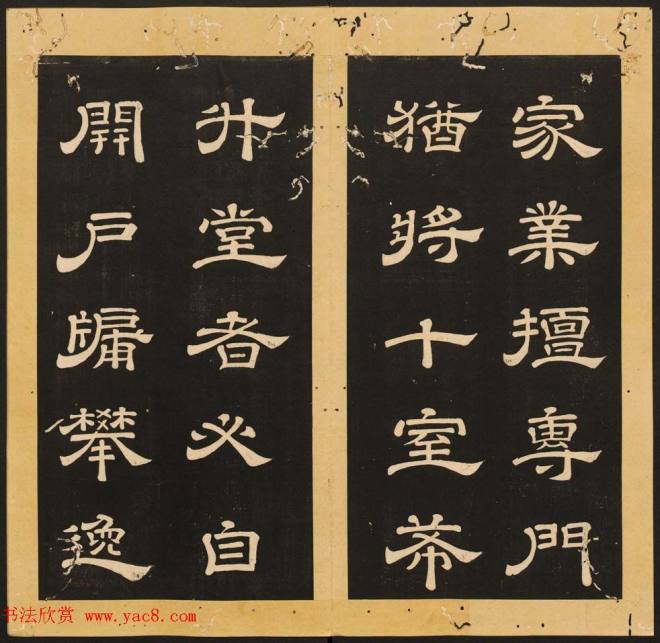 家業擅專門
猶將十室
升堂者必自
開戶牖攀逸
书法欣赏 www.yac8.com